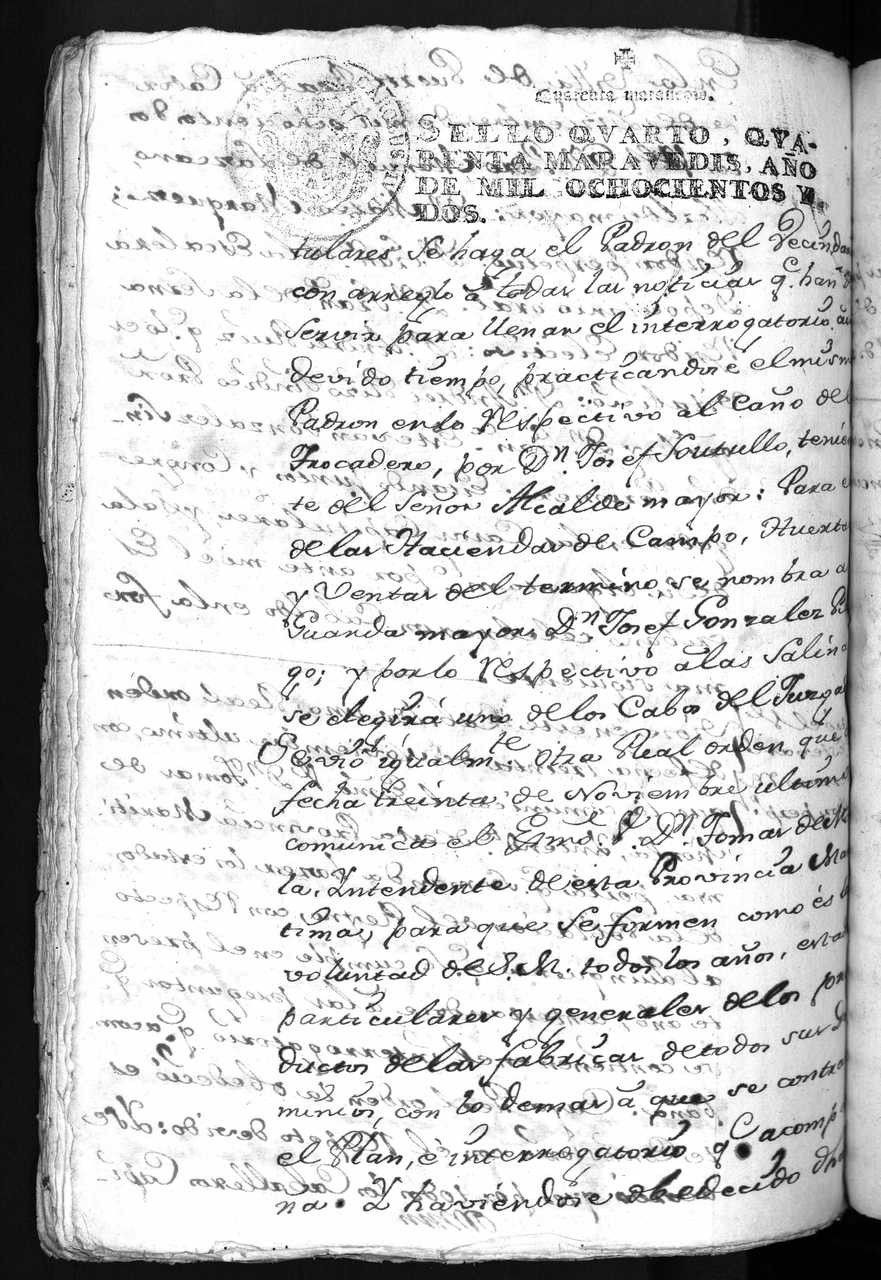 Quarenta maravedis.
SELLO QVARTO, QVA-
RENTA MARAVEDIS, AÑO
DE MIL OCHOCIENTOS Y
DOS.
tulares se haga el Padron del Vecinda
con arreglo à todas las noticias q.e han
servir para llenar el interrogatorio á
devido tiempo, practicandose el mism
Padron en lo respectivo al Caño del
Trocadero, por D.n Josef Soutullo, tenien
te del Señor Alcalde mayor: Para e
de las Haciendas de Campo, Huerta
y Ventas del termino se nombra a
Guarda mayor D.n Josef Gonzalez
go; y por lo respectivo à las Salina
se elegirá uno de los Cabos del Juzga
Se vió igualm.te otra Real orden que
fecha treinta de Noviembre ultimo
comunica el Exmô S.r D.n Tomas de
la, Yntendente de esta Provincia Ma
tima, para que se formen como és
voluntad de S. M. todos los años, esta
particulares y generales de los pro
ductos de las fabricas de todos sus D
minios, con lo demas à que se contra
el Plan, é interrogatorio q.e acompa
na. Y haviendose obedecido dh